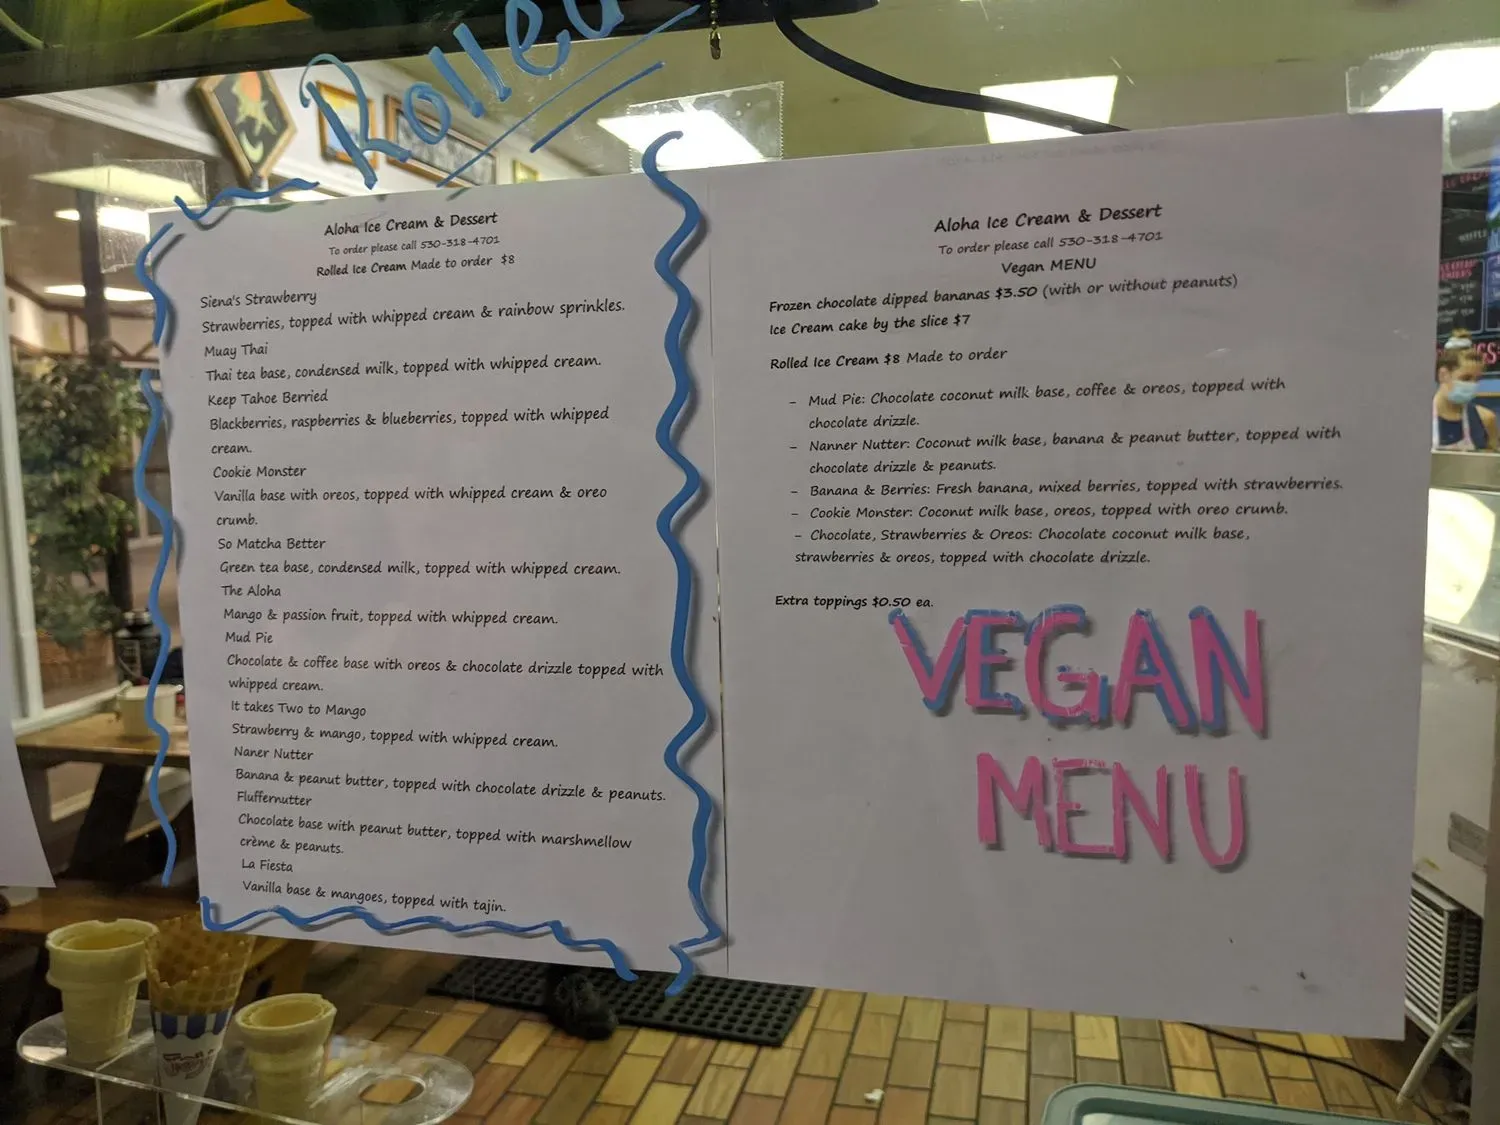 Rolled
Aloha Ice Cream & Dessert
To order please call 530-318-4701
Rolled Ice Cream Made to order $8
Siena's Strawberry
Strawberries, topped with whipped cream & rainbow sprinkles.
Muay Thai
Thai tea base, condensed milk, topped with whipped cream.
Keep Tahoe Berried
Blackberries, raspberries & blueberries, topped with whipped
cream.
Cookie Monster
Vanilla base with oreos, topped with whipped cream & oreo
crumb.
So Matcha Better
Green tea base, condensed milk, topped with whipped cream.
The Aloha
Mango & passion fruit, topped with whipped cream.
Mud Pie
Chocolate & coffee base with oreos & chocolate drizzle topped with
whipped cream.
It takes Two to Mango
Strawberry & mango, topped with whipped cream.
Naner Nutter
Banana & peanut butter, topped with chocolate drizzle & peanuts.
Fluffernutter
Chocolate base with peanut butter, topped with marshmellow
crème & peanuts.
La Fiesta
Vanilla base & mangoes, topped with tajin.
Aloha Ice Cream & Dessert
To order please call 530-318-4701
Vegan MENU
Frozen chocolate dipped bananas $3.50 (with or without peanuts)
Ice Cream cake by the slice $7
Rolled Ice Cream $8 Made to order
- Mud Pie: Chocolate coconut milk base, coffee & oreos, topped with
chocolate drizzle.
- Nanner Nutter: Coconut milk base, banana & peanut butter, topped with
chocolate drizzle & peanuts.
- Banana & Berries: Fresh banana, mixed berries, topped with strawberries.
- Cookie Monster: Coconut milk base, oreos, topped with oreo crumb.
- Chocolate, Strawberries & Oreos: Chocolate coconut milk base,
strawberries & oreos, topped with chocolate drizzle.
Extra toppings $0.50 ea.
VEGAN
MENU